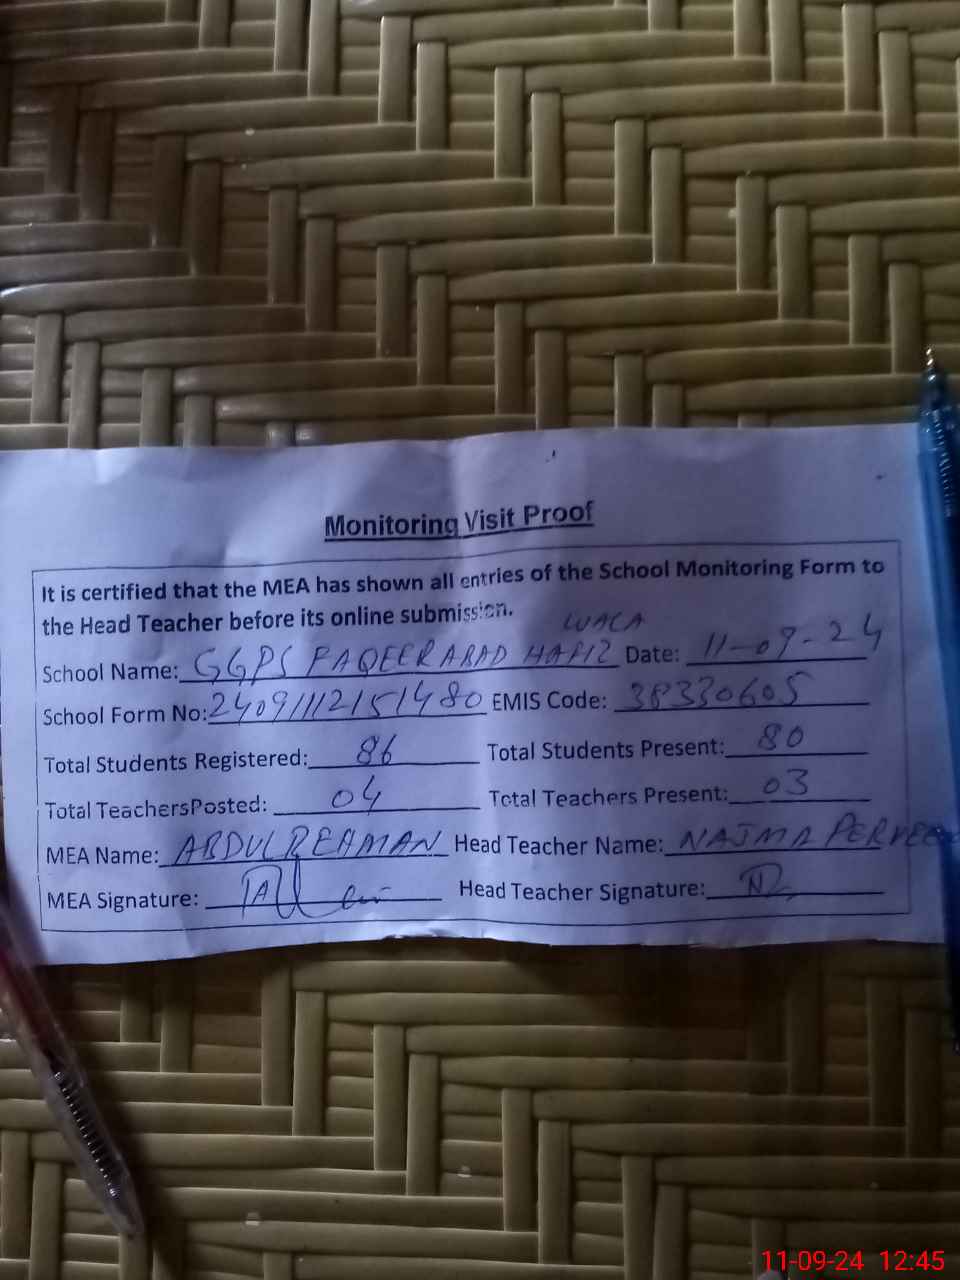 Monitoring Visit Proof
It is certified that the MEA has shown all entries of the School Monitoring Form to
the Head Teacher before its online submission.
WACA
School Name: GGPS FAQEERABAD HAFIZ Date: 11-09-24
School Form No: 24091112151480 EMIS Code: 38330605
Total Students Registered: 86 Total Students Present: 80
Total TeachersPosted: 04 Total Teachers Present: 03
MEA Name: ABDUL REHMAN Head Teacher Name: NAJMA PERVEEN
MEA Signature: Head Teacher Signature:
11-09-24 12:45